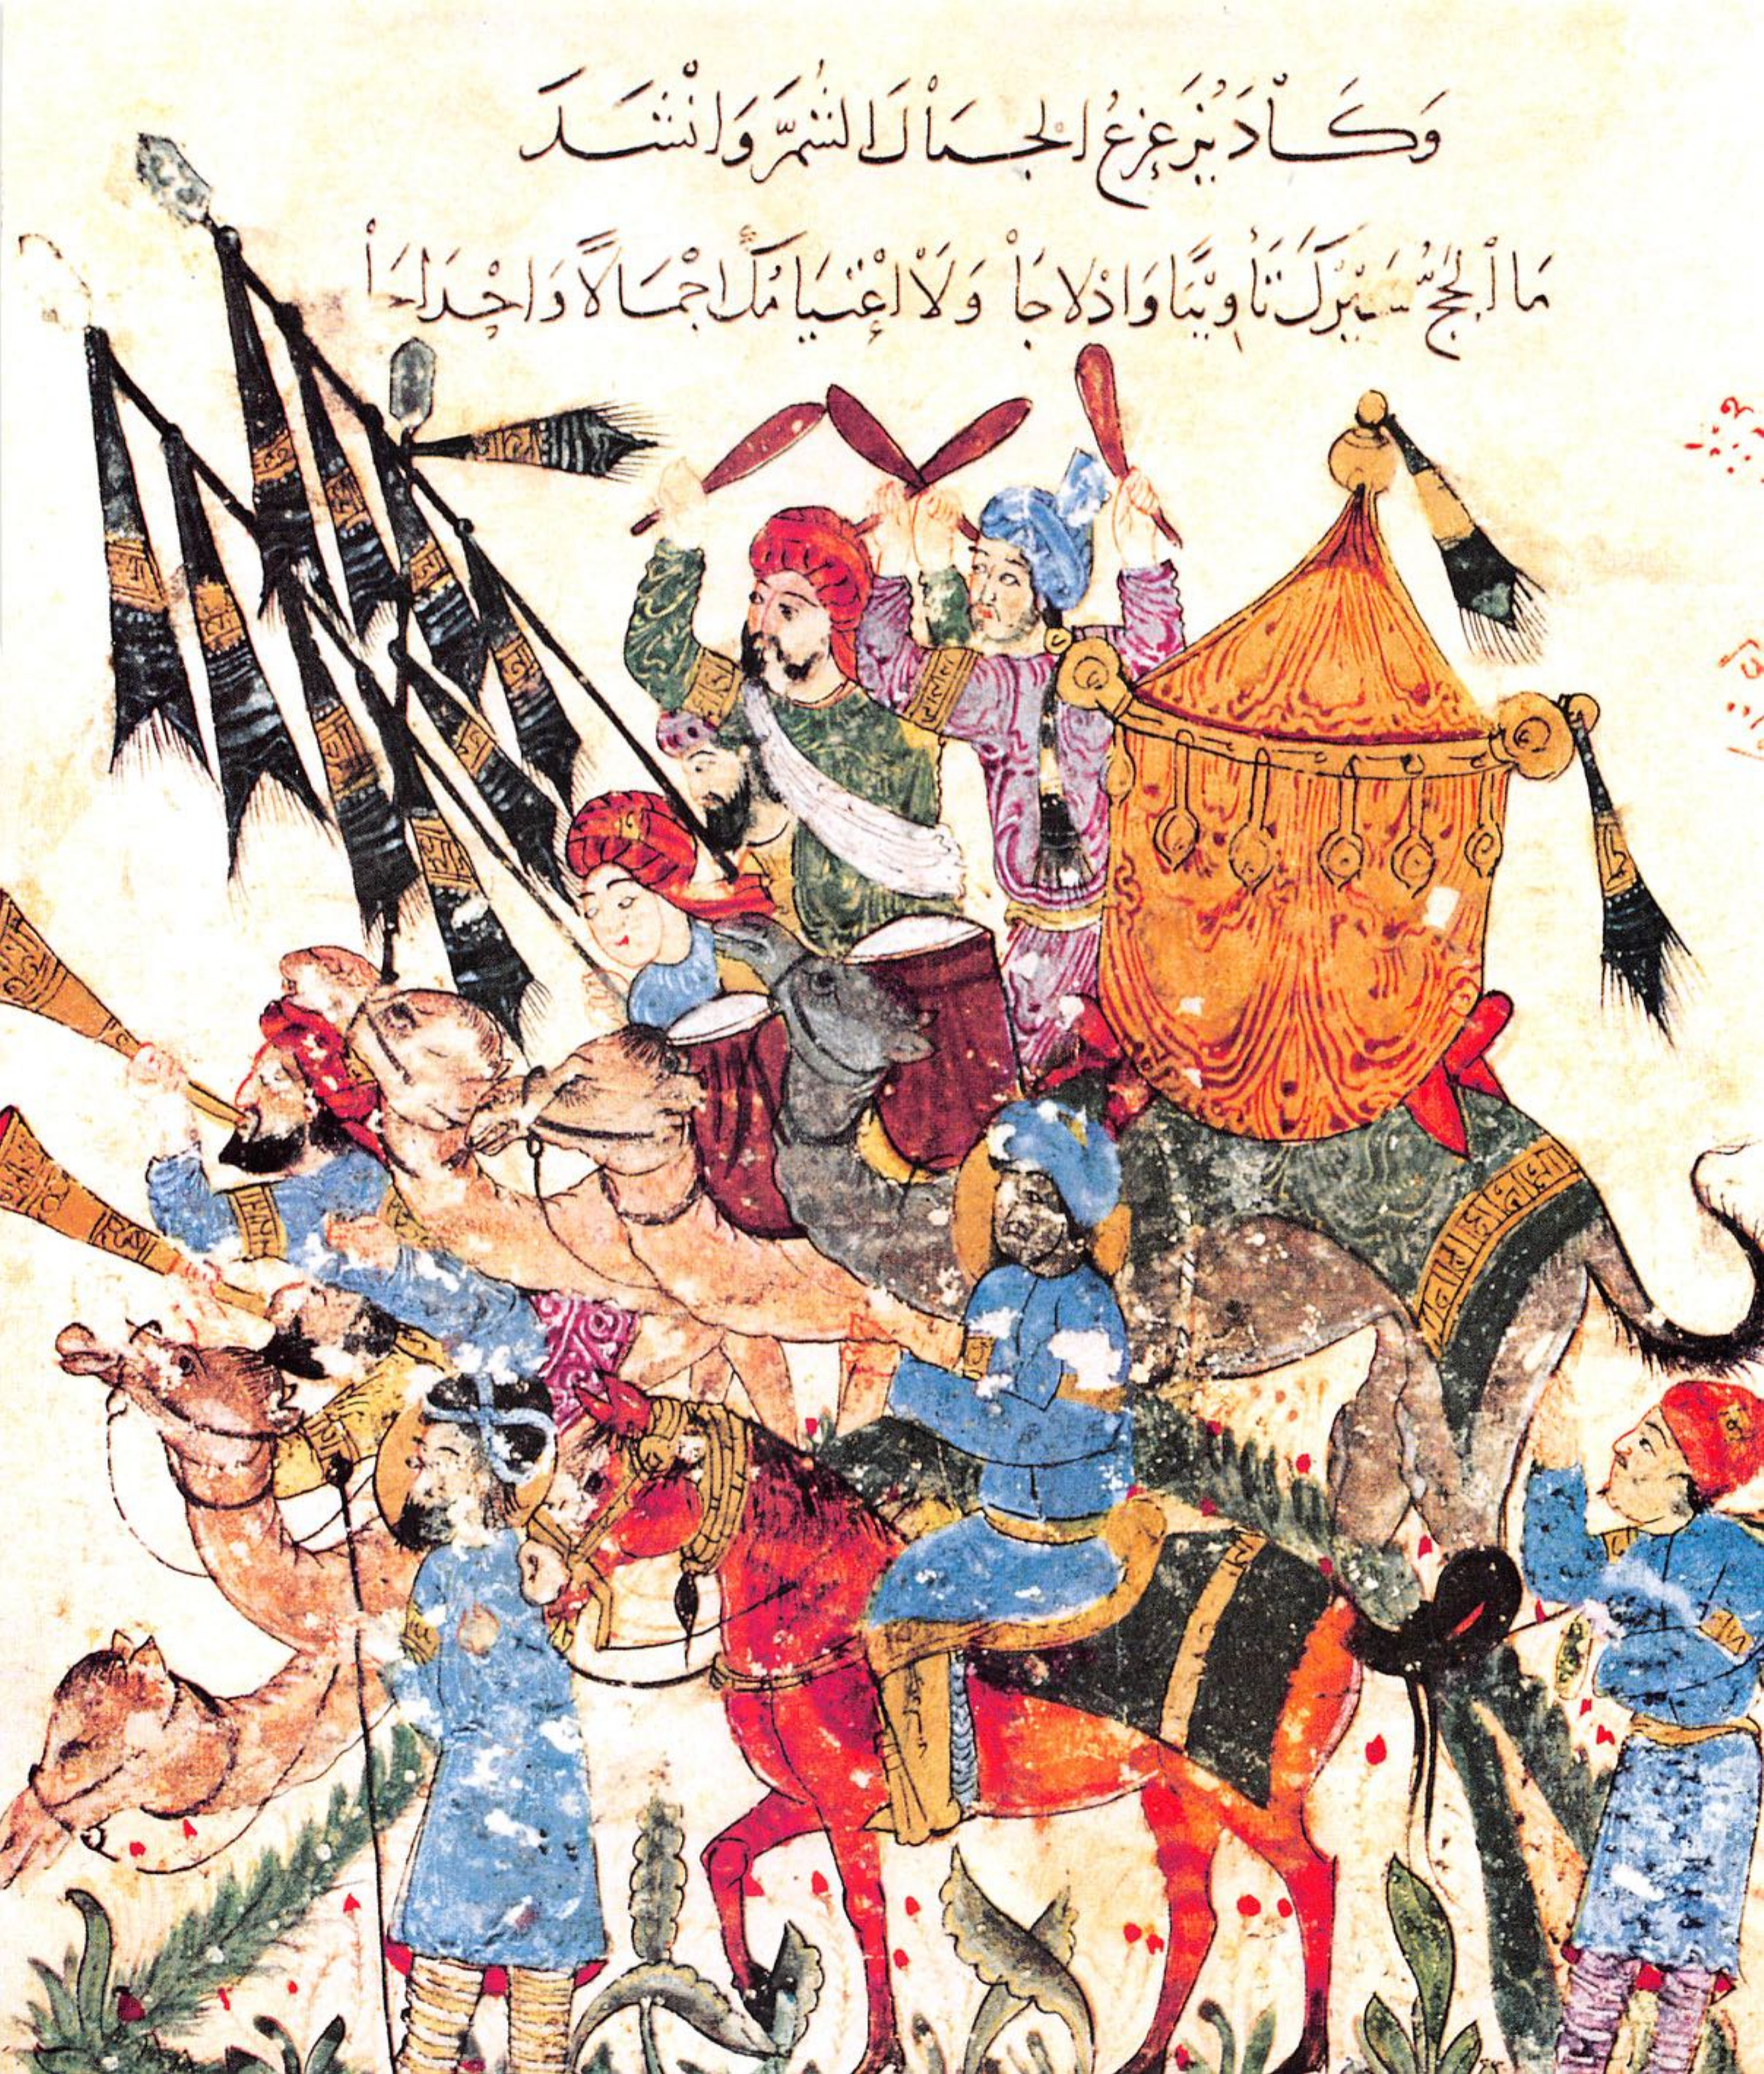 وَكَاْدَ يُزَعزِعُ الجِبَاْلَ الشُمَّ وَانْشَدَ
مَا اْلحَجُّ سَيْرُكَ تَأوِيْبًا وَاِدْلَاجَاْ وَلَاْ اعْتِيَامُكَ اجْمَالًا وَاحْدَاجَاْ